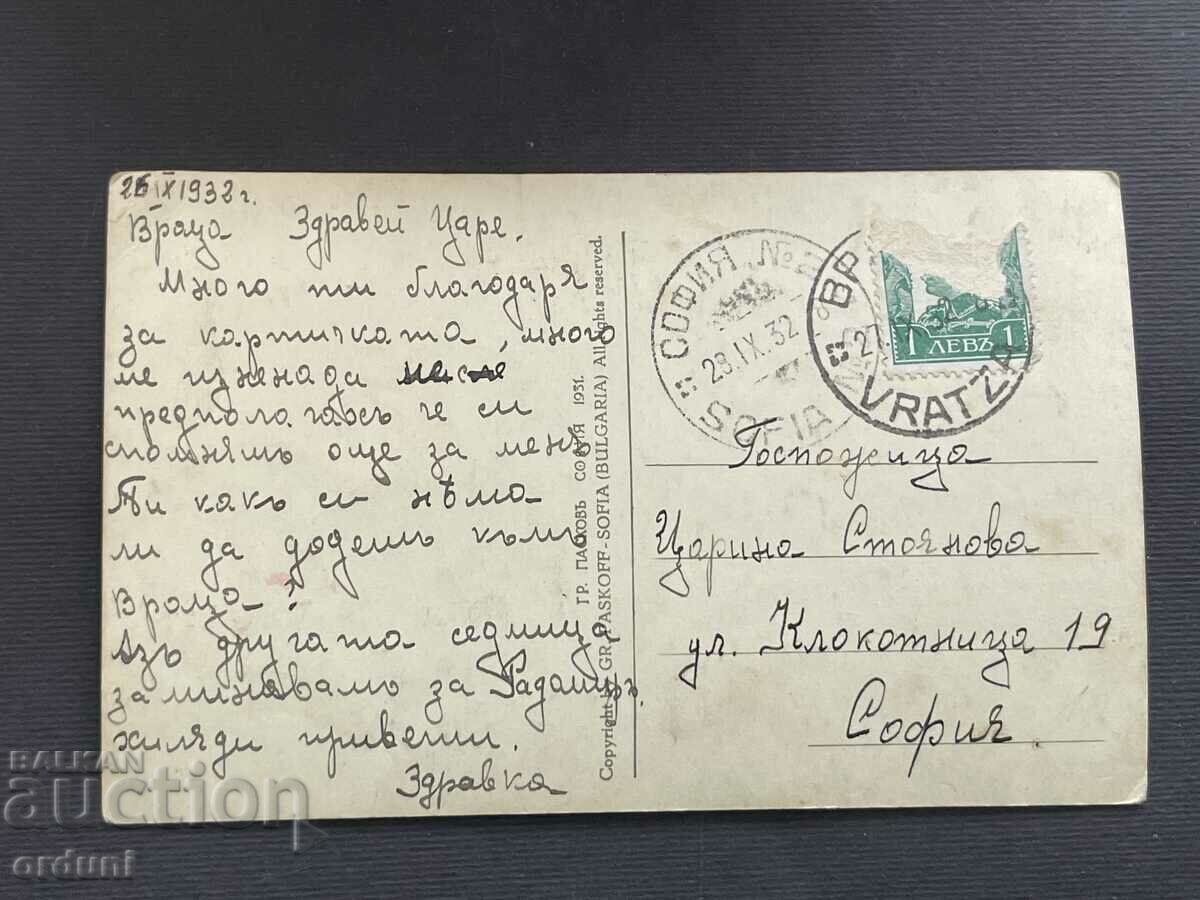 26 IX 1932 г.
Враца Здравей Царе.
Много ти благодаря
за картичката, много
ме изненада не
предполагахъ че си
спомнямъ още за менъ
Ти какъ си нѣма
ли да додешъ къмъ
Враца?
Азъ другата седмица
заминавамъ за Радомиръ.
хиляди привети.
Здравка
ГР. ПАСКОВЪ СОФИЯ 1931.
Copyright by GR. PASKOFF-SOFIA (BULGARIA) All rights reserved.
СОФИЯ №2
28.IX.32
SOFIA
ВР
27. 32
VRATZA
1 ЛЕВЪ 1
Госпожица
Царина Стоянова
ул. Клокотница 19
София
BALKAN
auction
orduni